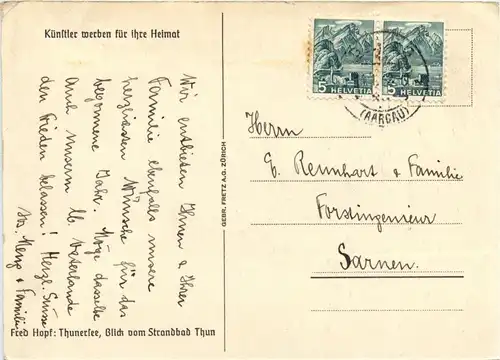 Künstler werben für ihre Heimat
Wir entbieten Ihnen & Ihrer
Familie ebenfalls unsere
herzlichsten Wünsche für das
begonnene Jahr. Möge dasselbe
auch unserm lb. Vaterlande
den Frieden belassen! Herzl. Grüsse
Meng & Familie
Fred Hopf: Thunersee, Blick vom Strandbad Thun
GEBR. FRETZ A.G. ZÜRICH
5 HELVETIA
5 HELVETIA
(AARGAU)
Herrn
E. Rennhart & Familie
Forstingenieur
Sarnen.